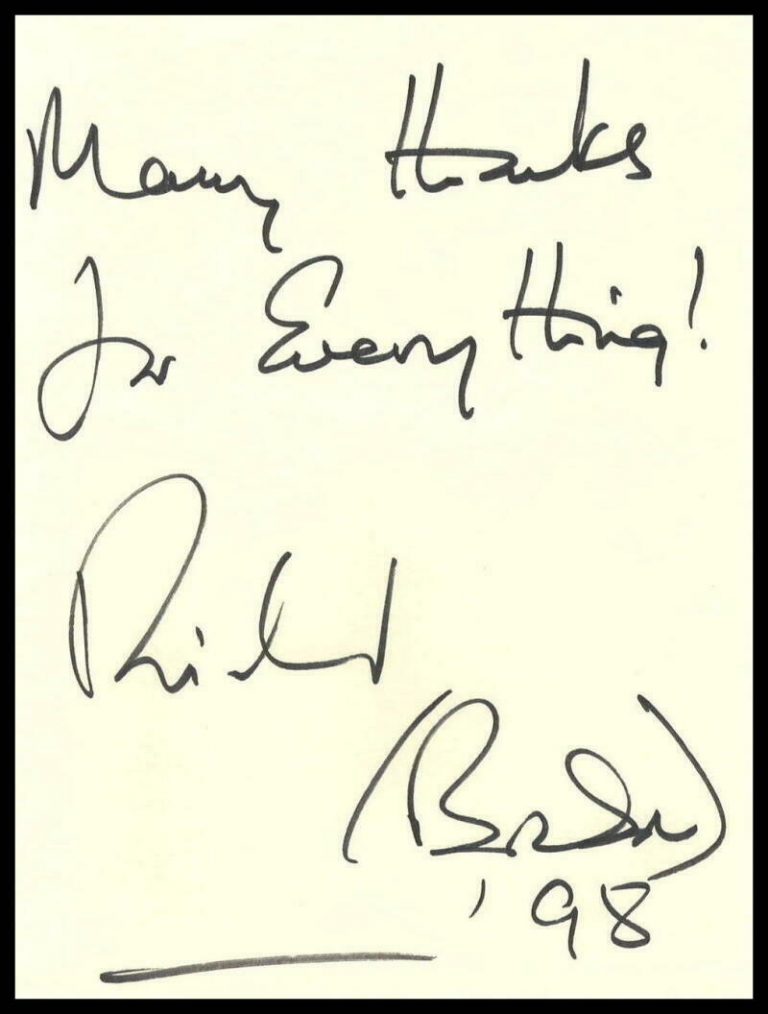 Many thanks
for Everything!
Richard
'98